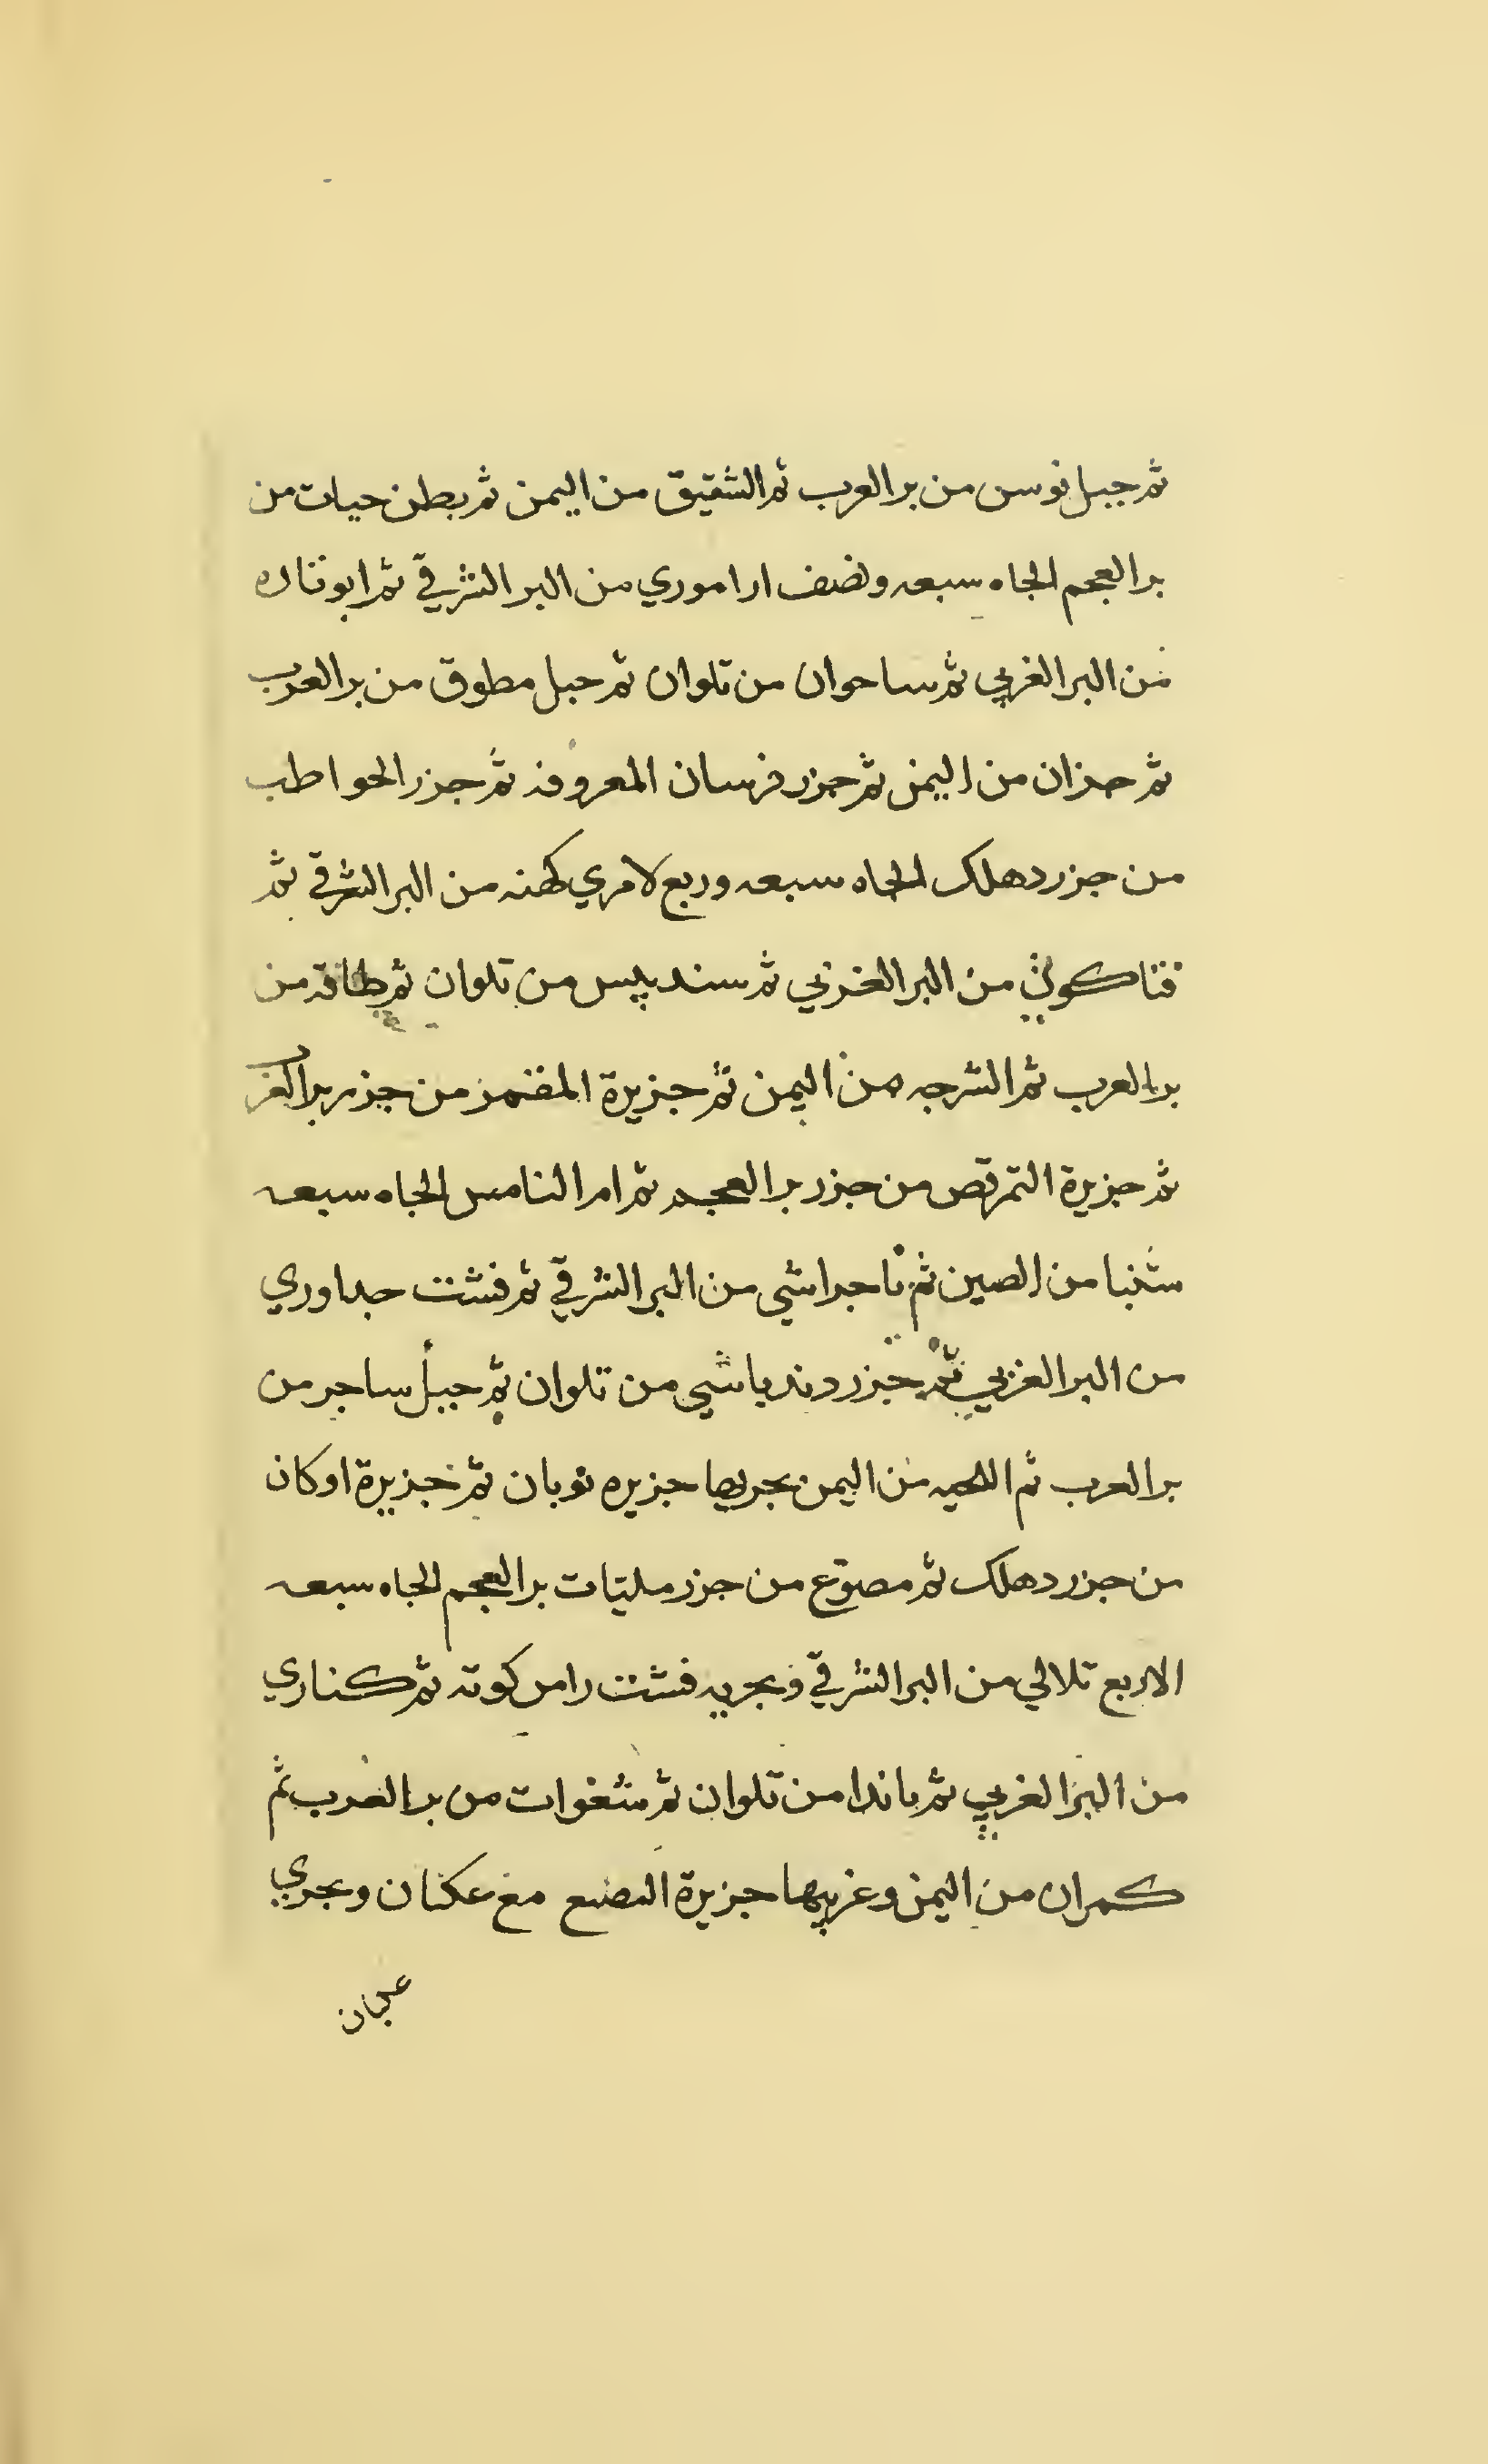 ثم جبل نوس من بر العرب ثم الشقيق من اليمن ثم بطن حيات من
بر العجم الجاه سبعه ونصف اراموري من البر الشرقي ثم ابوناره
من البر الغربي ثم ساحوان من تلوان ثم جبل مطوق من بر العرب
ثم جزان من اليمن ثم جزر فرسان المعروفه ثم جزر الحواطب
من جزر دهلك الجاه سبعه وربع لامري كهنه من البر الشرقي ثم
فتاكولي من البر الغربي ثم سنديبس من تلوان ثم طافه من
بر العرب ثم الشرجه من اليمن ثم جزيرة من جزر بر العرب
ثم جزيرة التمرقص من جزر بر العجم ثم ام النامس الجاه سبعه
شنبا من الصين ثم ناجراشي من البر الشرقي ثم فشت جداوري
من البر الغربي ثم جزر دندباشي من تلوان ثم جبل ساجر من
بر العرب ثم اللحيه من اليمن بحريها جزيره نوبان ثم جزيرة اوكان
من جزر دهلك ثم مصوع من جزر مليتات بر العجم الجاه سبعه
الاربع تلالي من البر الشرقي وبحريه فشت رامن كوته ثم كناري
من البر الغربي ثم باندا من تلوان ثم شغوات من بر العرب ثم
كمران من اليمن وغربيها جزيرة البضيع مغ عكنان وبحري